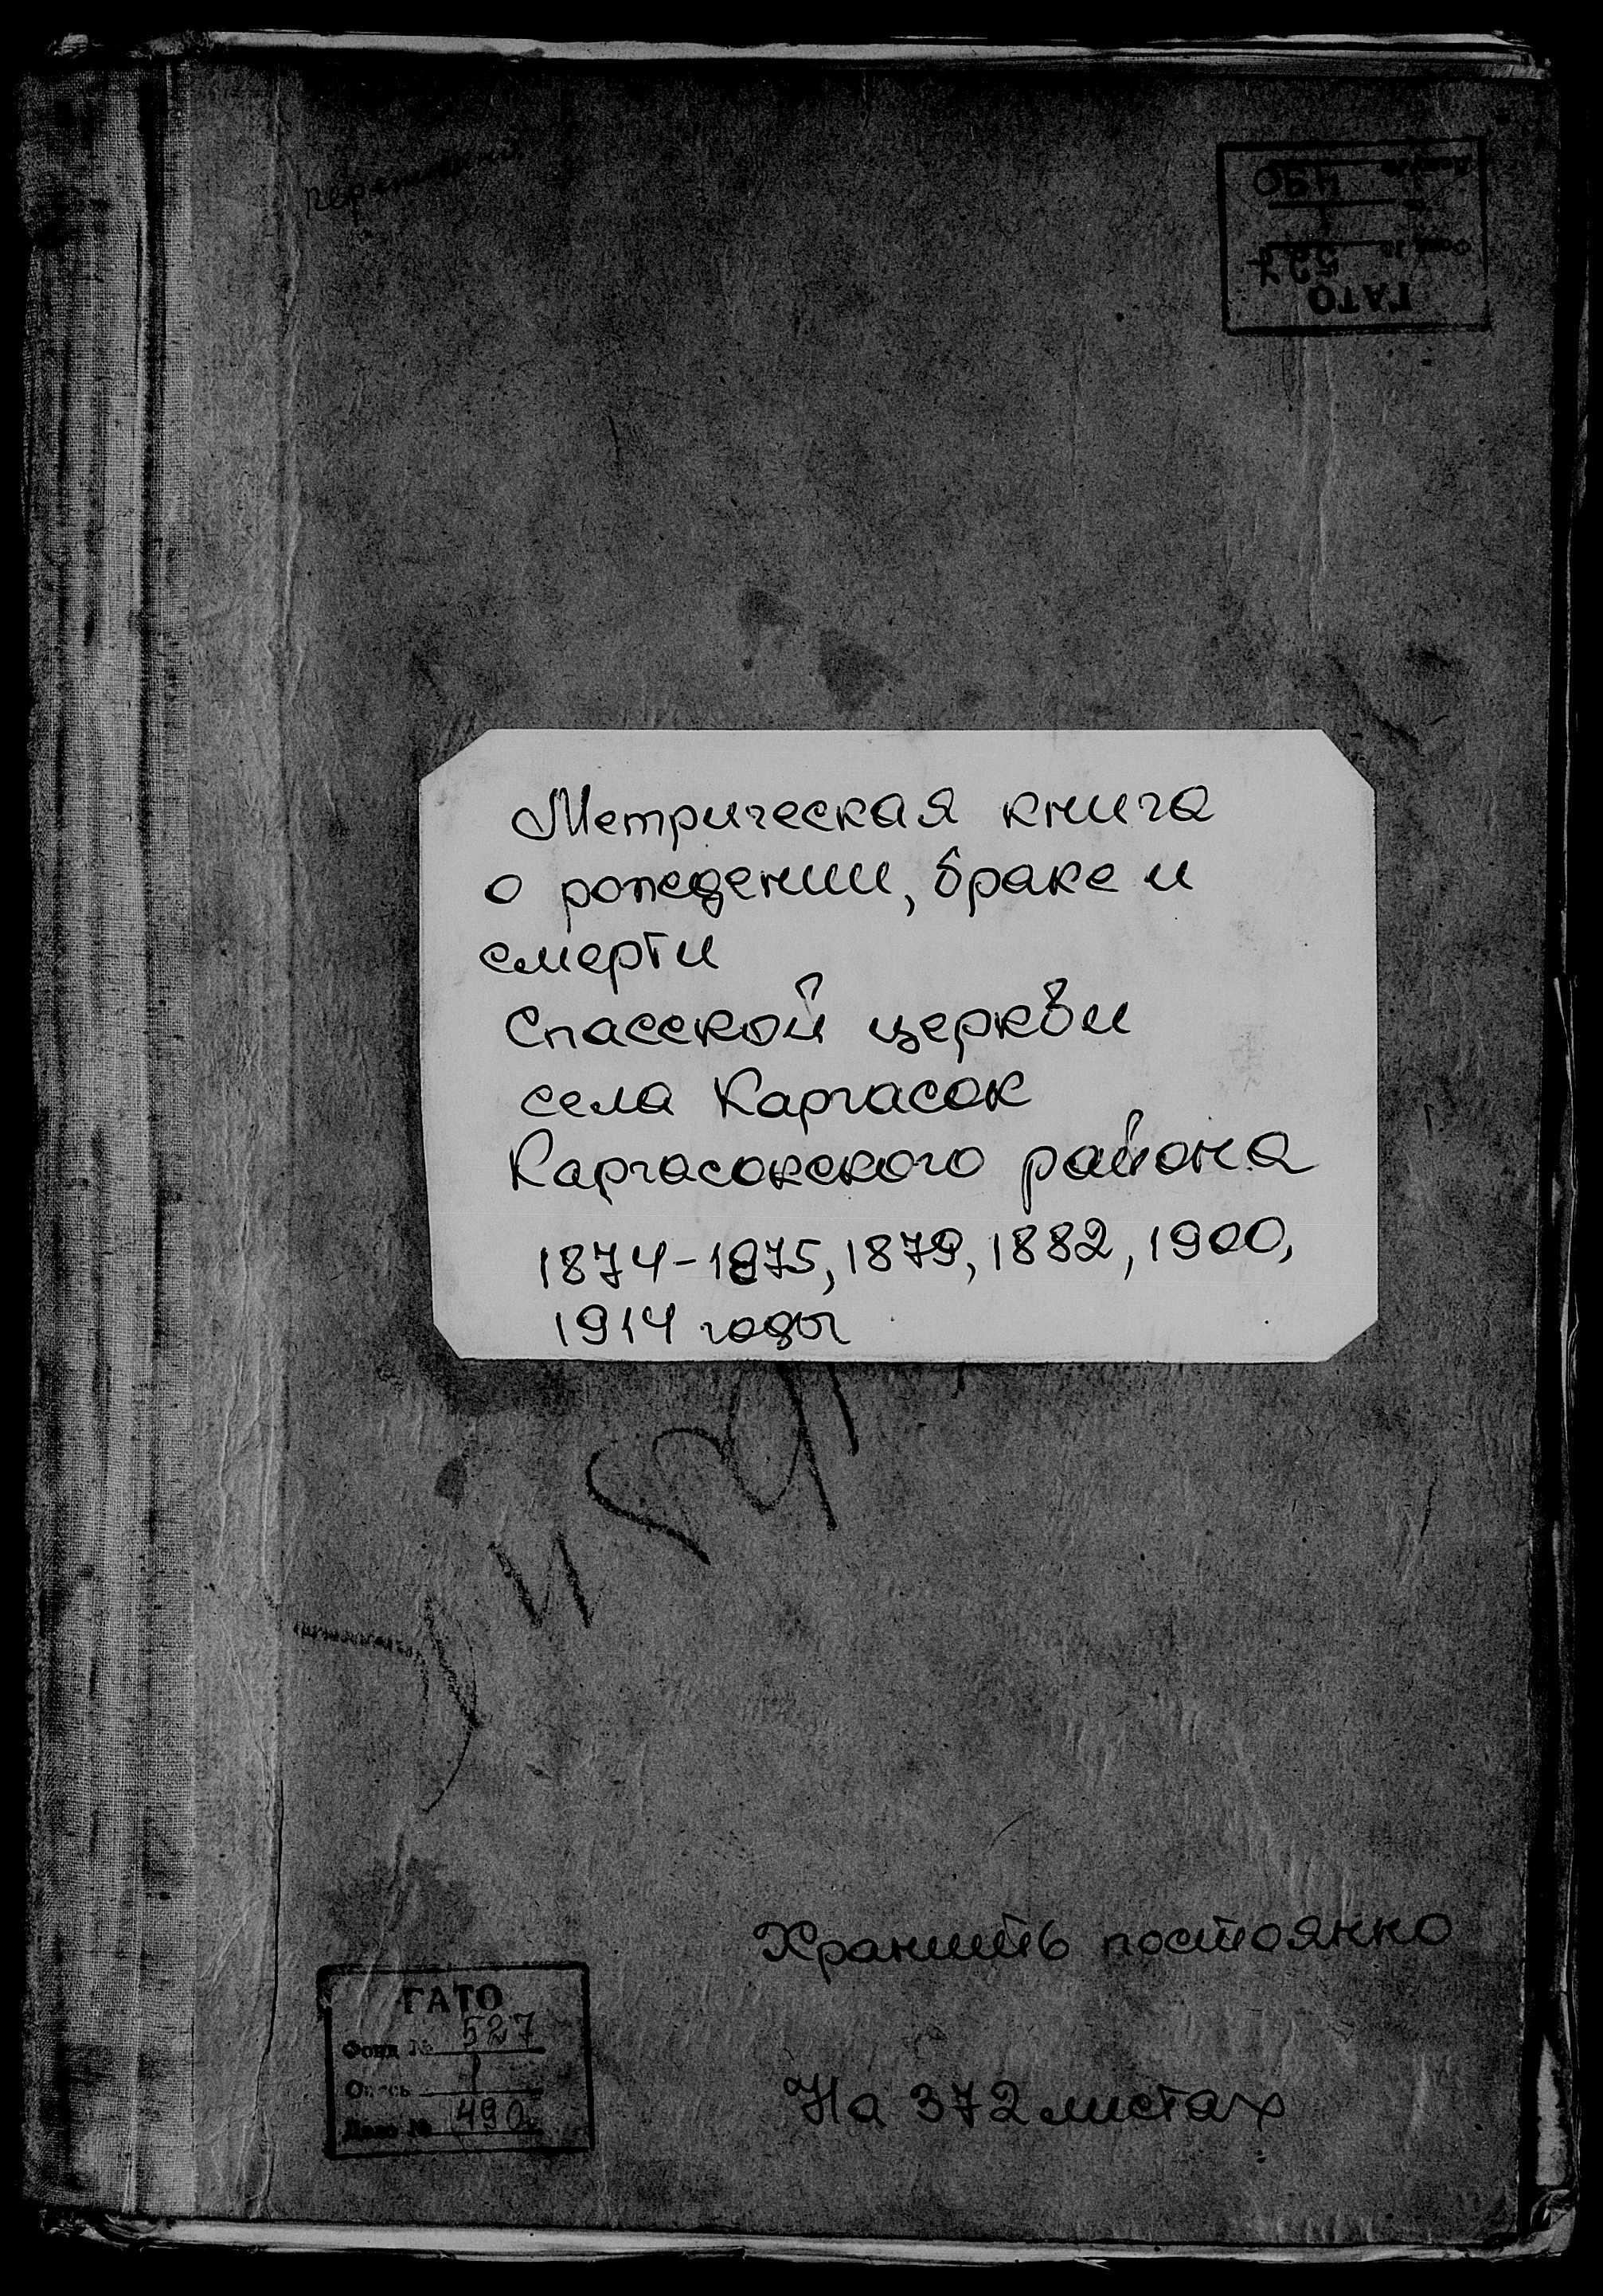 ГАТО
Фонд № 527
1
490
Метрическая книга
о рождении, браке и
смерти
Спасской церкви
села Каргасок
Каргасокского района
1874-1875, 1879, 1882, 1900,
1914 годы
Хранить постоянно
ГАТО
Фонд № 527
Опись 1
Дело № 490
На 372 листах